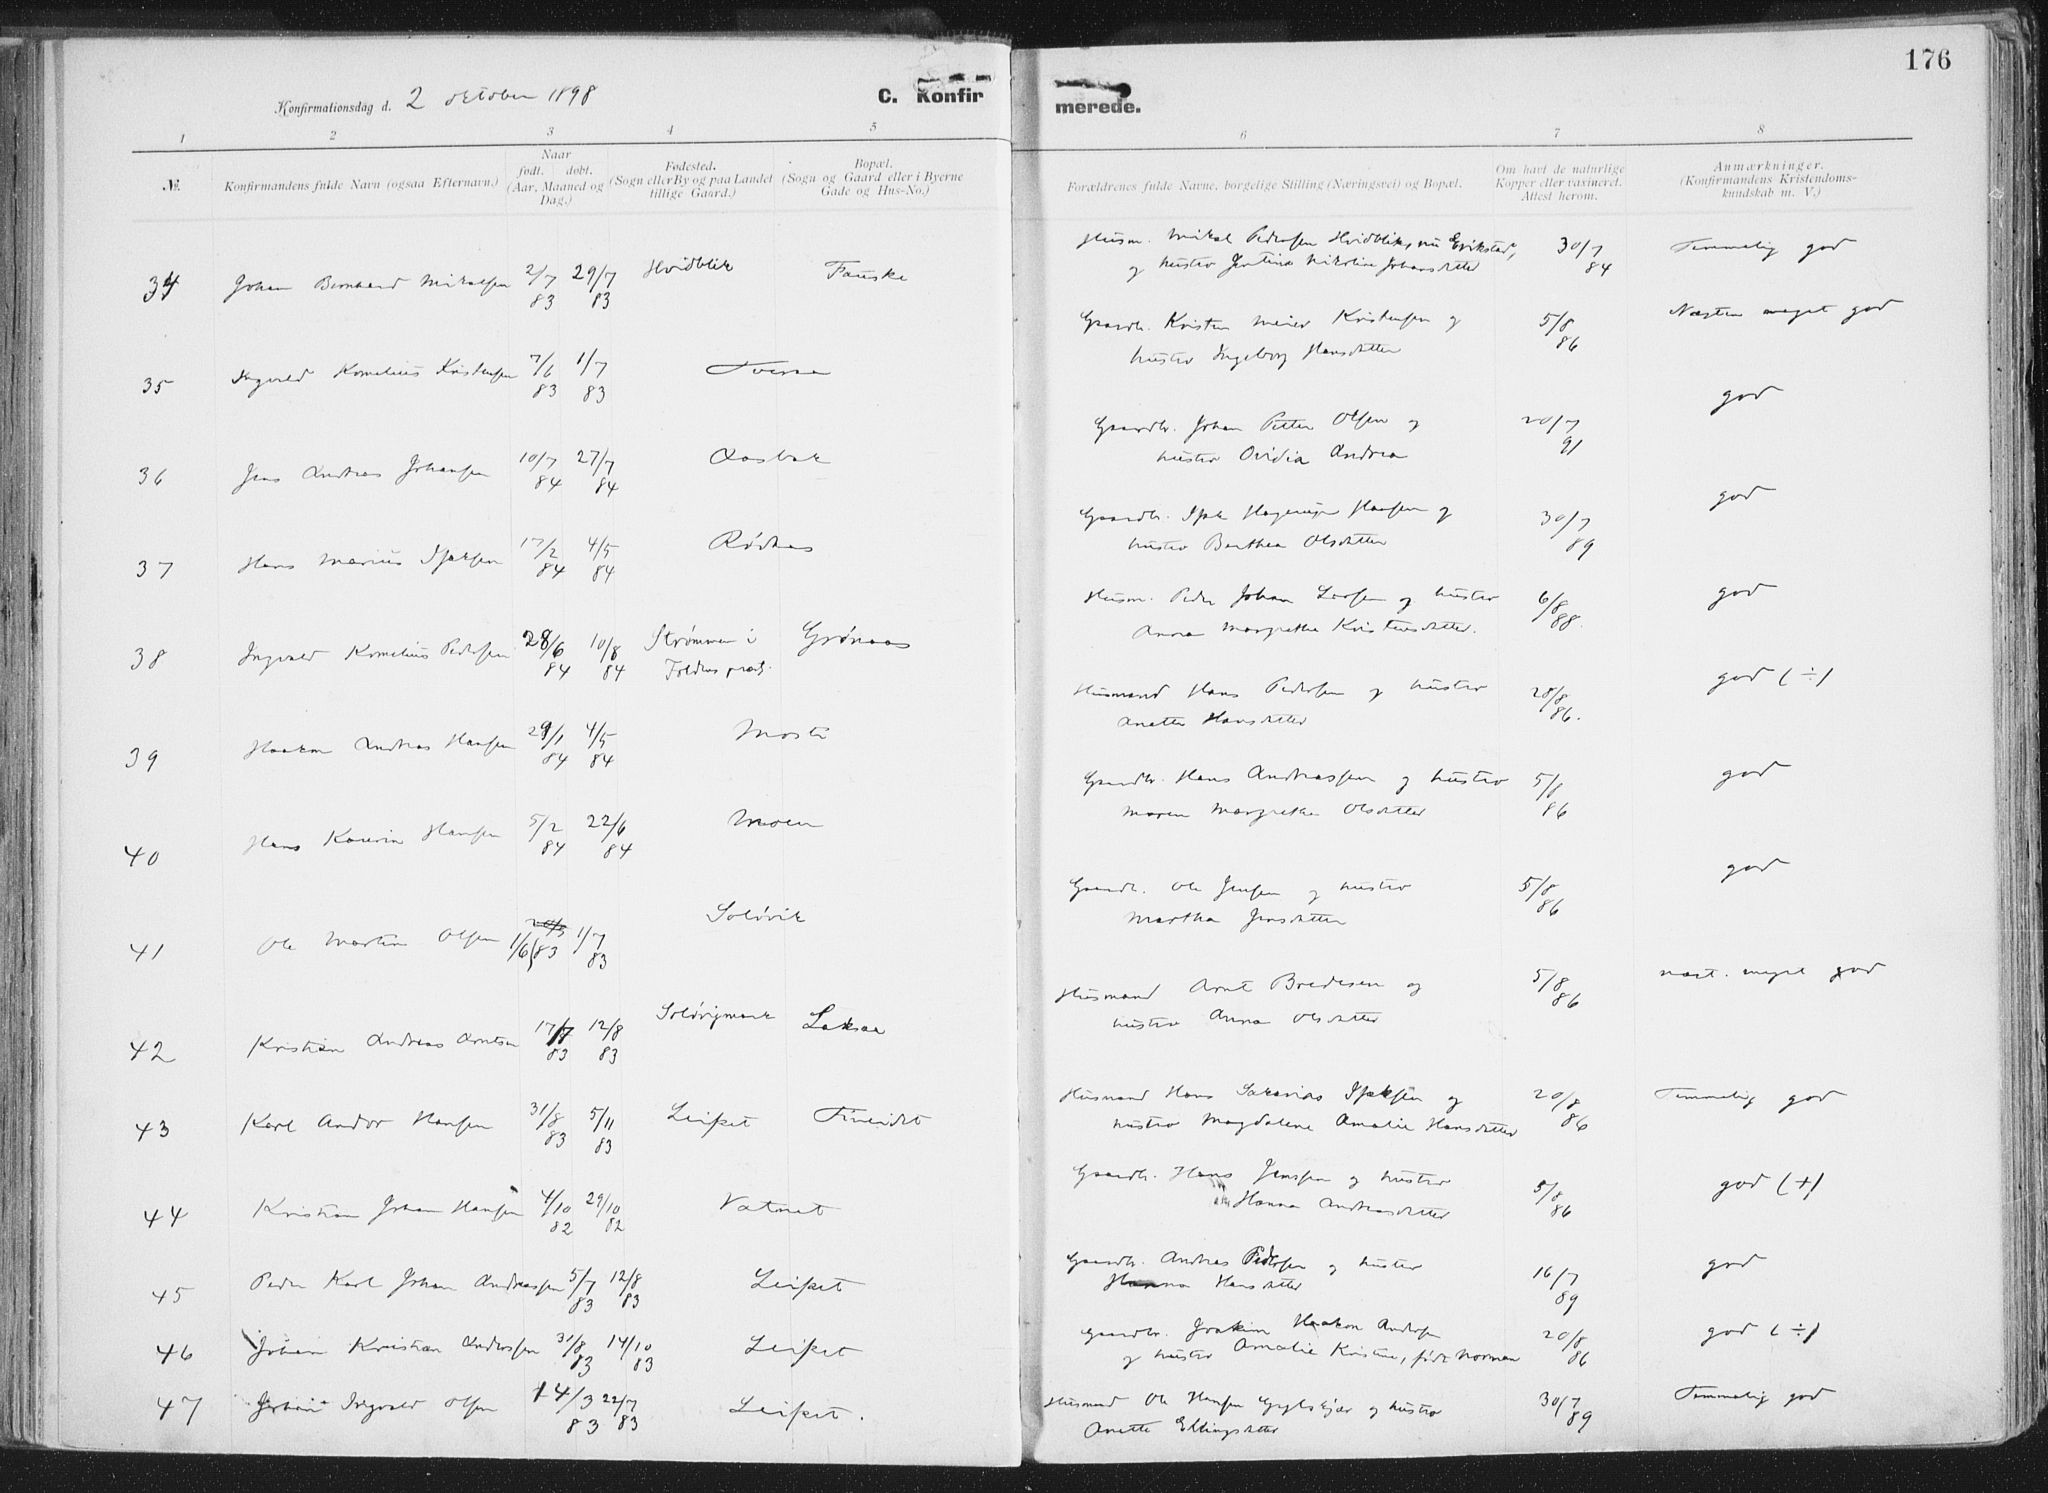 176
Konfirmationsdag d. 2 october 1898
C. Konfir merede.
1 2 3 4 5 6 7 8
№.
Konfirmandens fulde Navn (ogsaa Efternavn.)
Naar
født. døbt.
(Aar, Maaned og
Dag.)
Fødested.
(Sogn eller By og paa Landet
tillige Gaard.)
Bopæl.
(Sogn og Gaard eller i Byerne
Gade og Hus-No.)
Forældrenes fulde Navne, borgelige Stilling (Næringsvei) og Bopæl.
Om havt de naturlige
Kopper eller vaxineret.
Attest herom.
Anmærkninger.
(Konfirmandens Kristendoms-
kundskab m. V.)
34 Johan Bernhard Mikalsen 2/7 83 29/7 83 Hvidblik Fauske
Husm. Mikal Pedersen Hvidblik, nu Erikstad,
og hustru Jentine Nikoline Johansdatter
30/7 84 Temmelig god
35 Ingvald Kornelius Kristensen 7/6 83 1/7 83 Tveraa
Gaardb. Kristen Meier Kristensen og
hustru Ingeborg Hansdatter
5/8 86 Næsten meget god
36 Jens Andreas Johansen 10/7 84 27/7 84 Aasbak
Gaardb. Johan Petter Olsen og
hustru Ovidia Andrea
20/7 91 god
37 Hans Marius Isaksen 17/2 84 4/5 84 Rødaas
Gaardb. Isak Hansen og
hustru Benthea Olsdatter
30/7 89 god
38 Ingvald Kornelius Pedersen 28/6 84 10/8 84 Strømmen i
Foldens præst. Grønaas
Husm. Peder Johan Larsen og hustru
Anna Margrethe Kristensdatter.
6/8 88. god
39 Haakon Andreas Hansen 29/1 84 4/5 84 Moste
Husmand Hans Pedersen og hustru
Anette Hansdatter
28/8 86. god (÷)
40 Hans Hansen 5/2 84 22/6 84 Moen
Gaardb. Hans Andreassen og hustru
Maren Margrethe Olsdatter
5/8 86 god
41 Ole Martin Olsen 1/6 83 1/7 83 Soløvik
Gaardb. Ole Jensen og hustru
Martha Jensdatter
5/8 86 god
42 Kristian Andreas Arntsen 17/7 83 12/8 83 Soløvigmark Laksaa
Husmand Arnt Bredesen og
hustru Anna Olsdatter
5/8 86 næst. meget god
43 Karl Andor Hansen 31/8 83 5/11 83 Leifset Fineidet
Husmand Hans Sakarias Isaksen og
hustru Magdalene Amalie Hansdatter
20/8 86 Temmelig god
44 Kristian Johan Hansen 4/10 82 29/10 82 Vatnet
Gaardb. Hans Jensen og hustru
Hanna Andreasdatter
5/8 86 god (+)
45 Peder Karl Johan Andreassen 5/7 83 12/8 83 Leifset
Gaardb. Andreas Pedersen og hustru
Hanna Hansdatter
16/7 89 god
46 Johan Kristian Andersen 31/8 83 14/10 83 Leifset
Gaardbr. Joakim Haakon Andersen
og hustru Amalie Kristine, født Norman
20/8 86 god (÷)
47 Johan Ingvald Olsen 14/3 83 22/7 83 Leifset.
Husmand Ole Hansen og hustru
Anette Ellingsdatter
30/7 89 Temmelig god